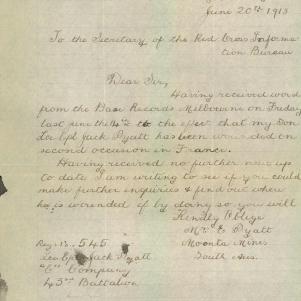 June 20th 1918
To the Secretary of the Red Cross Informa-
tion Bureau
Dear Sir,
Having received word
from the Base Records Melbourne on Friday
last to the effect that my Son
Lce Cpl Jack Pyatt has been wounded on
second occasion in France.
Having received no further news up
to date I am writing to see if you could
make further inquiries & find out where
he is wounded if by doing so you will
Kindly Oblige
Mr E Pyatt
Moonta Mines
South Aus.
Reg No. 545
Lce Cpl Jack Pyatt
"C" Company
43rd Battalion